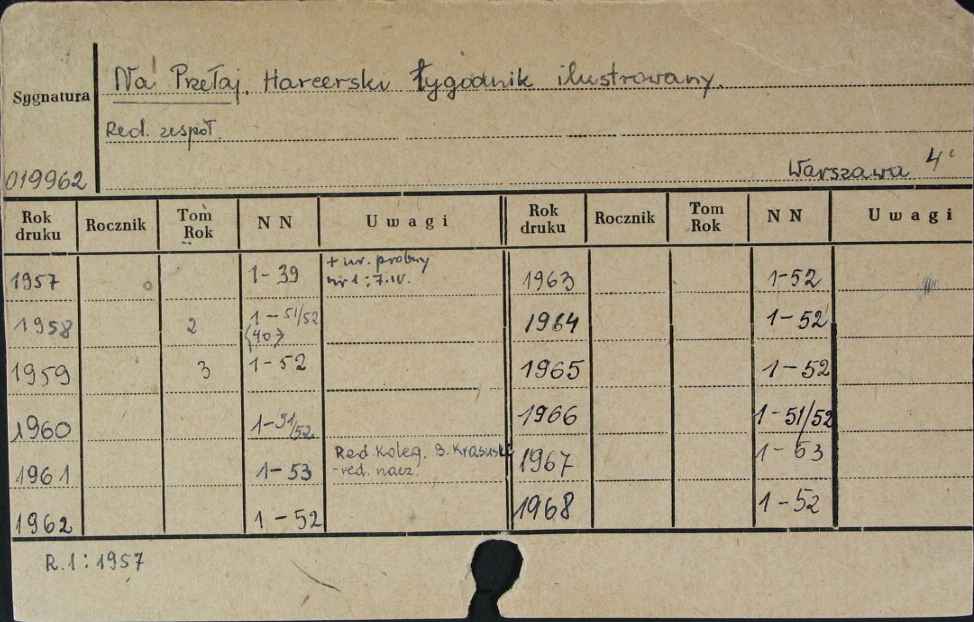 Na Przełaj. Harcerski tygodnik ilustrowany.
Sygnatura
Red. zespół.
019962
Warszawa 4°
Rok druku Rocznik Tom Rok NN Uwagi Rok druku Rocznik Tom Rok NN Uwagi
1957 1-39 + nr. próbny nr 1: 7.IV. 1963 1-52
1958 2 1-51/52 (40) 1964 1-52
1959 3 1-52 1965 1-52
1960 1-51/52 1966 1-51/52
1961 1-53 Red. Koleg. B. Krasuski -red. nacz. 1967 1-53
1962 1-52 1968 1-52
R.1: 1957